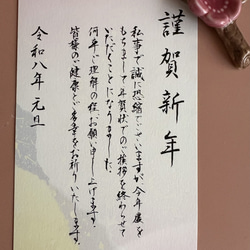 謹賀新年
私事で誠に恐縮でございますが、今年度を
もちまして年賀状でのご挨拶を終わらせて
いただくことになりました。
何卒ご理解の程、お願い申し上げます。
皆様のご健康とご多幸をお祈りいたします。
令和八年 元旦